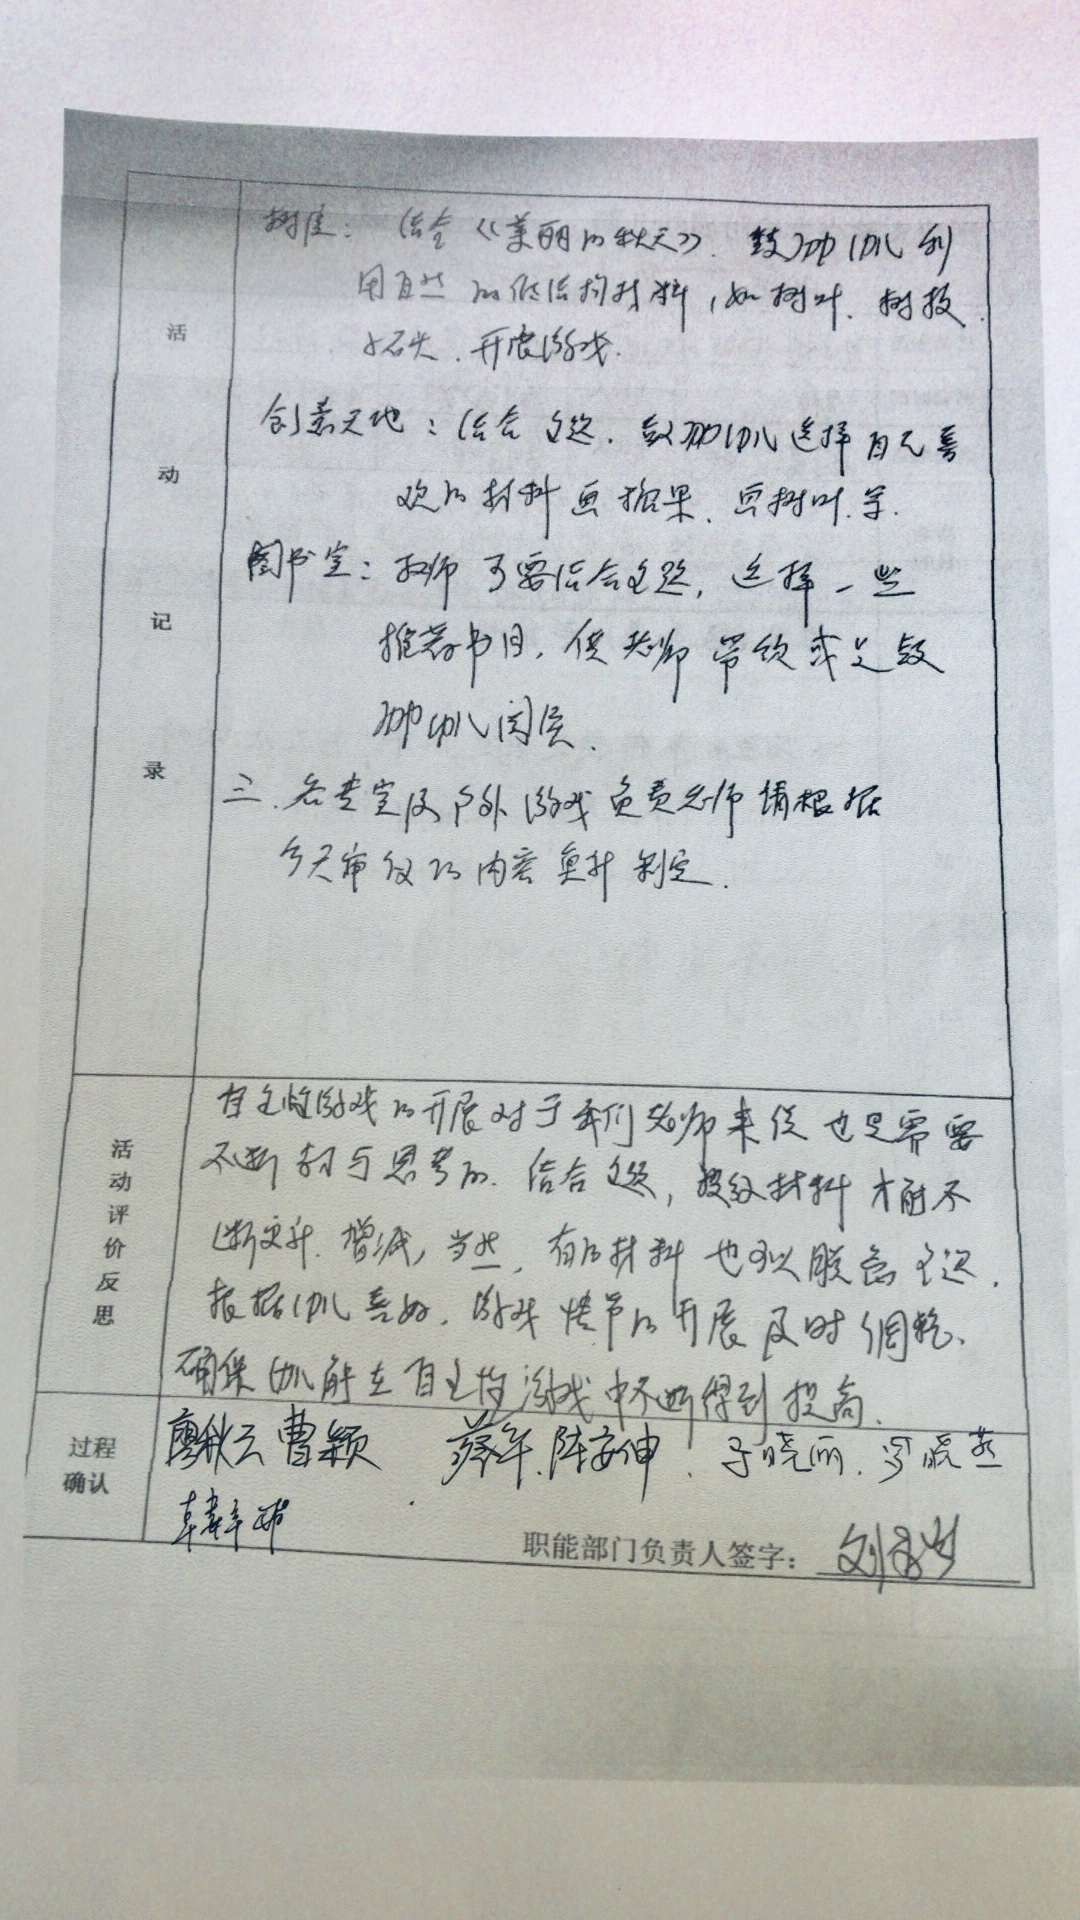 活动记录
树屋：结合《美丽的秋天》. 鼓励幼儿利
用自然的低结构材料，如树叶、树枝、
石头、开展游戏.
创意天地：结合主题. 鼓励幼儿选择自己喜
欢的材料画苹果、画树叶等.
图书室：教师可要结合主题, 选择一些
推荐书目, 供老师带领或是鼓
励幼儿阅读.
三. 各专室及户外游戏负责老师请根据
今天审议的内容更新制定.
活动评价反思
自主性游戏的开展对于我们老师来说也是需要
不断学习与思考的. 结合主题, 投放材料才能不
断更新. 增减, 当然, 有的材料也可以脱离主题.
根据幼儿喜好, 游戏情节的开展及时调整、
确保幼儿能在自主性游戏中不断得到提高.
过程确认
廖秋云 曹颖 蔡军、陈安伸、于晓丽、罗晓燕
职能部门负责人签字：